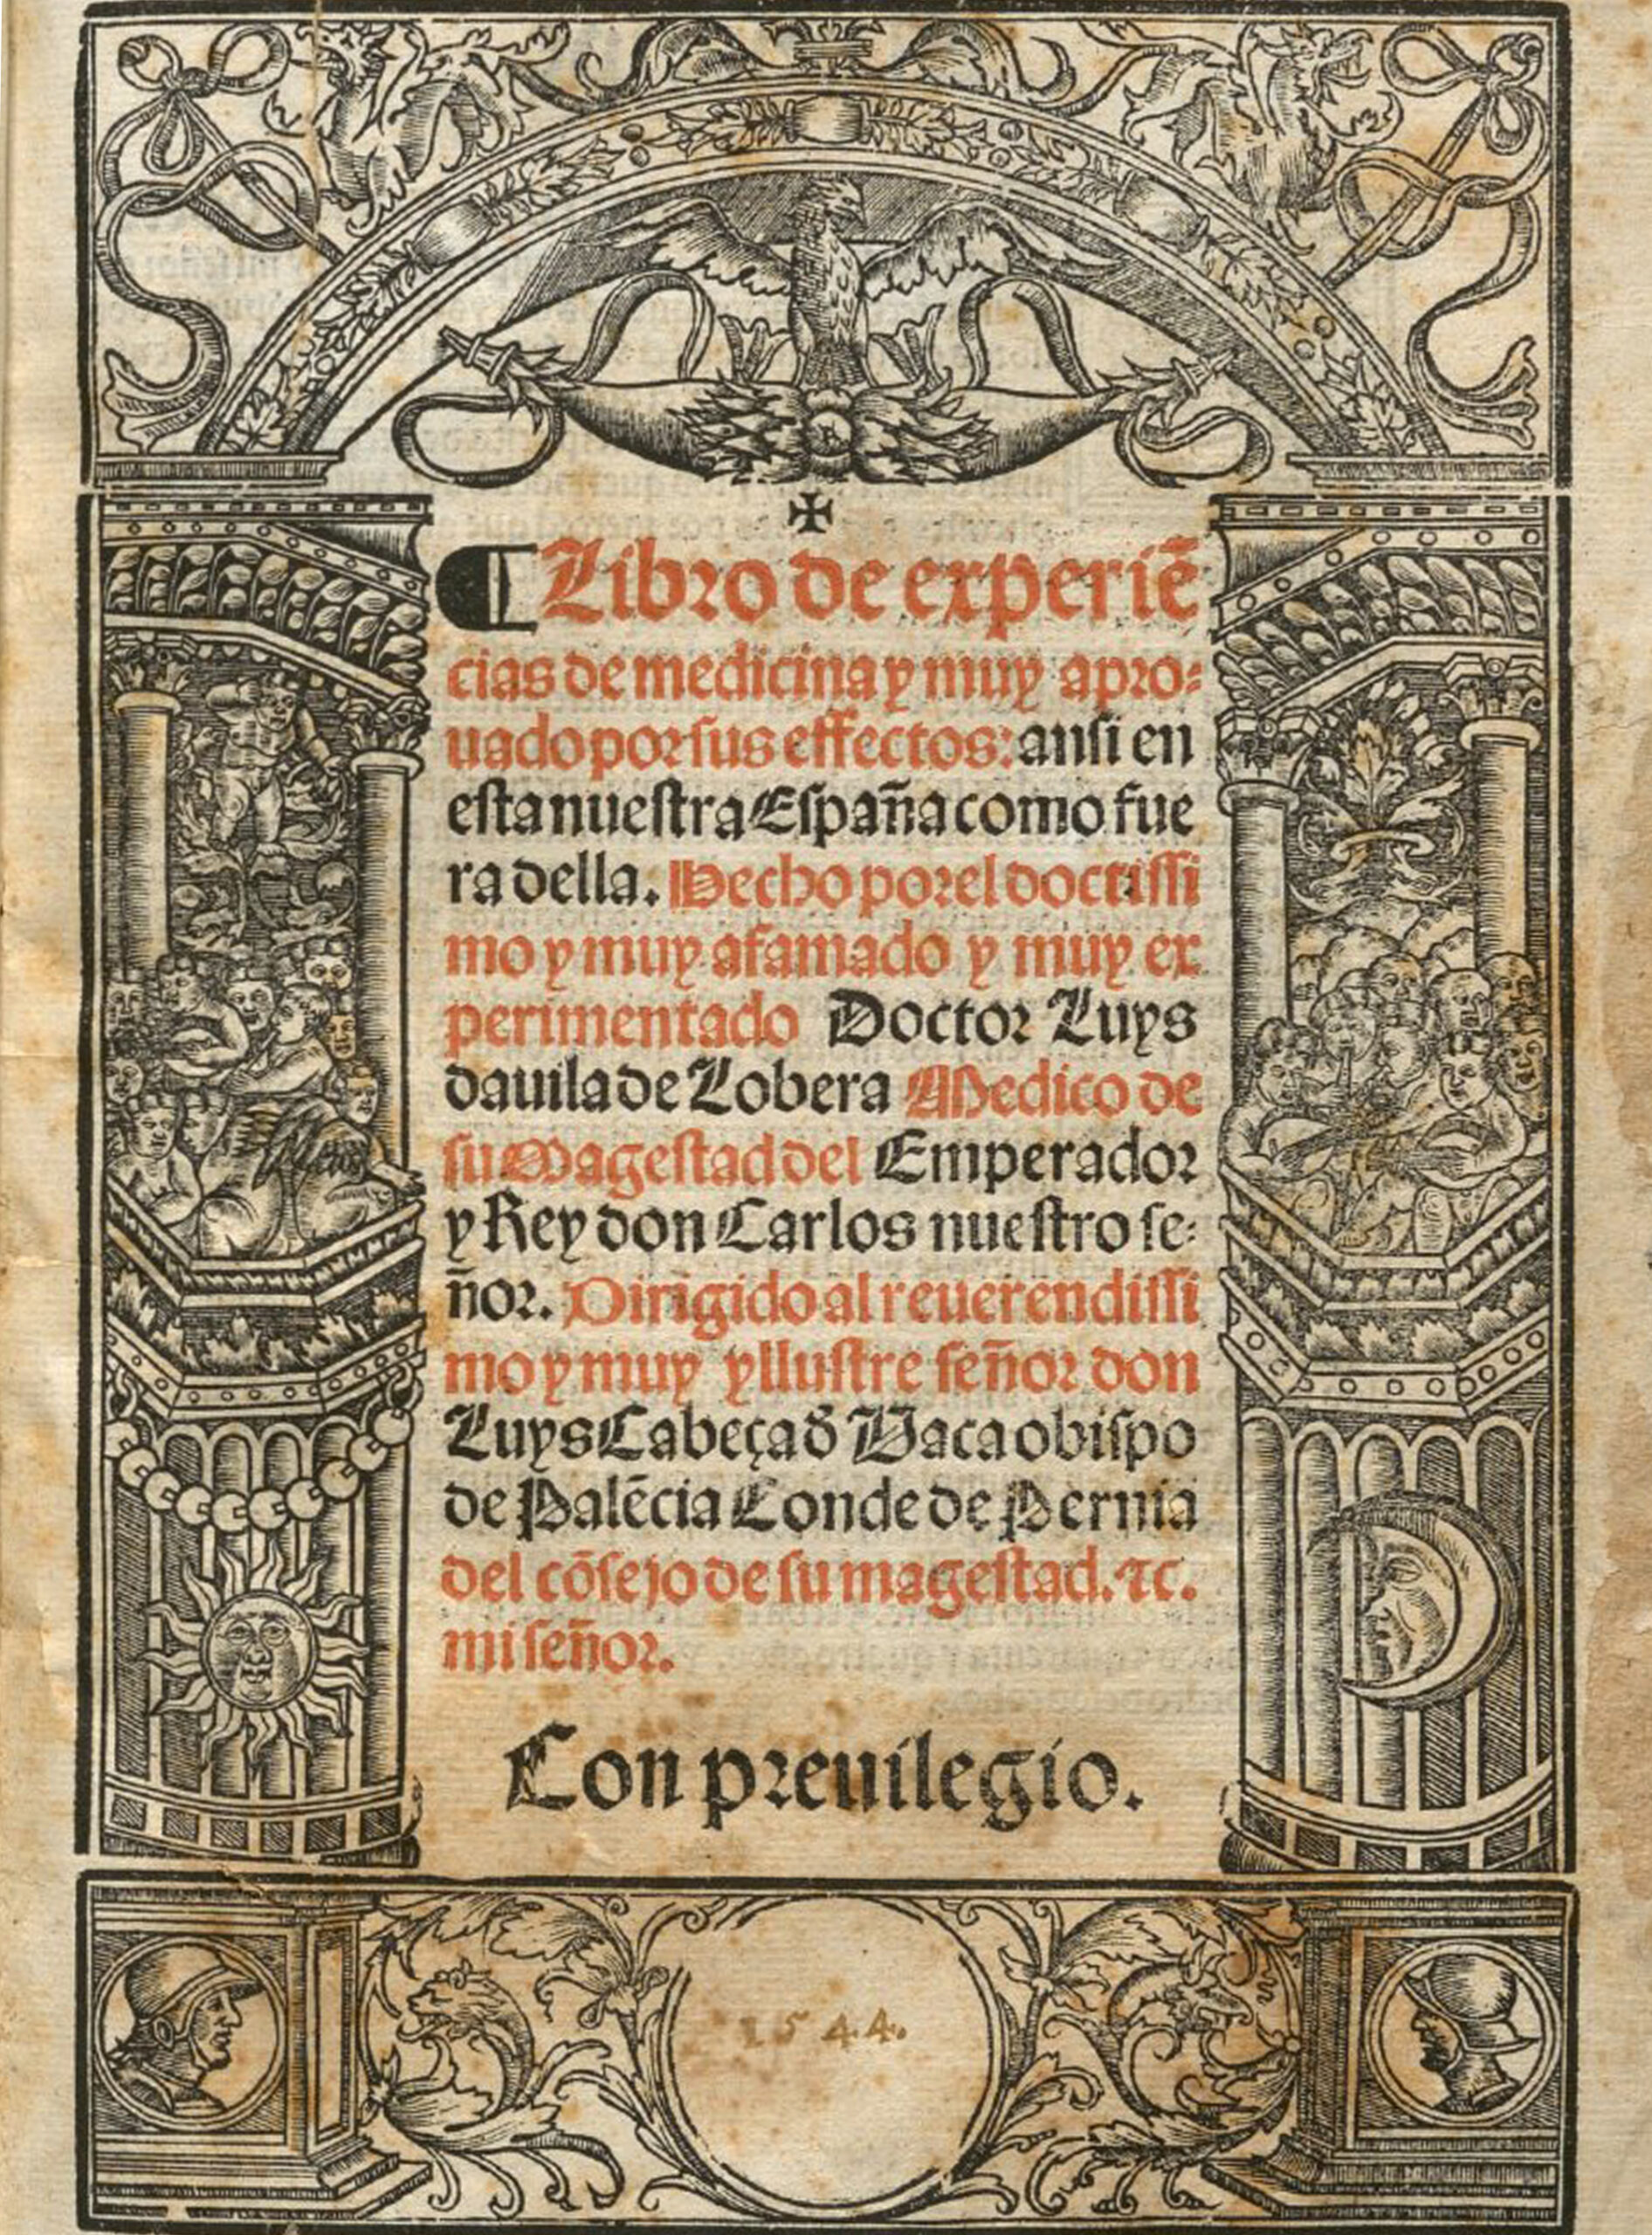 ✠
¶ Libro de experiẽ
cias de medicina y muy apro-
uado por sus effectos: ansi en
esta nuestra España como fue
ra della. Hecho por el doctissi
mo y muy afamado y muy ex
perimentado Doctor Luys
dauila de Lobera Medico de
su Magestad del Emperador
y Rey don Carlos nuestro se-
ñor. Dirigido al reuerendissi
mo y muy yllustre señor don
Luys Cabeça d̃ Vaca obispo
de Palẽcia Conde de Pernia
del cõsejo de su magestad. ⁊c.
mi señor.
Con preuilegio.
1544.